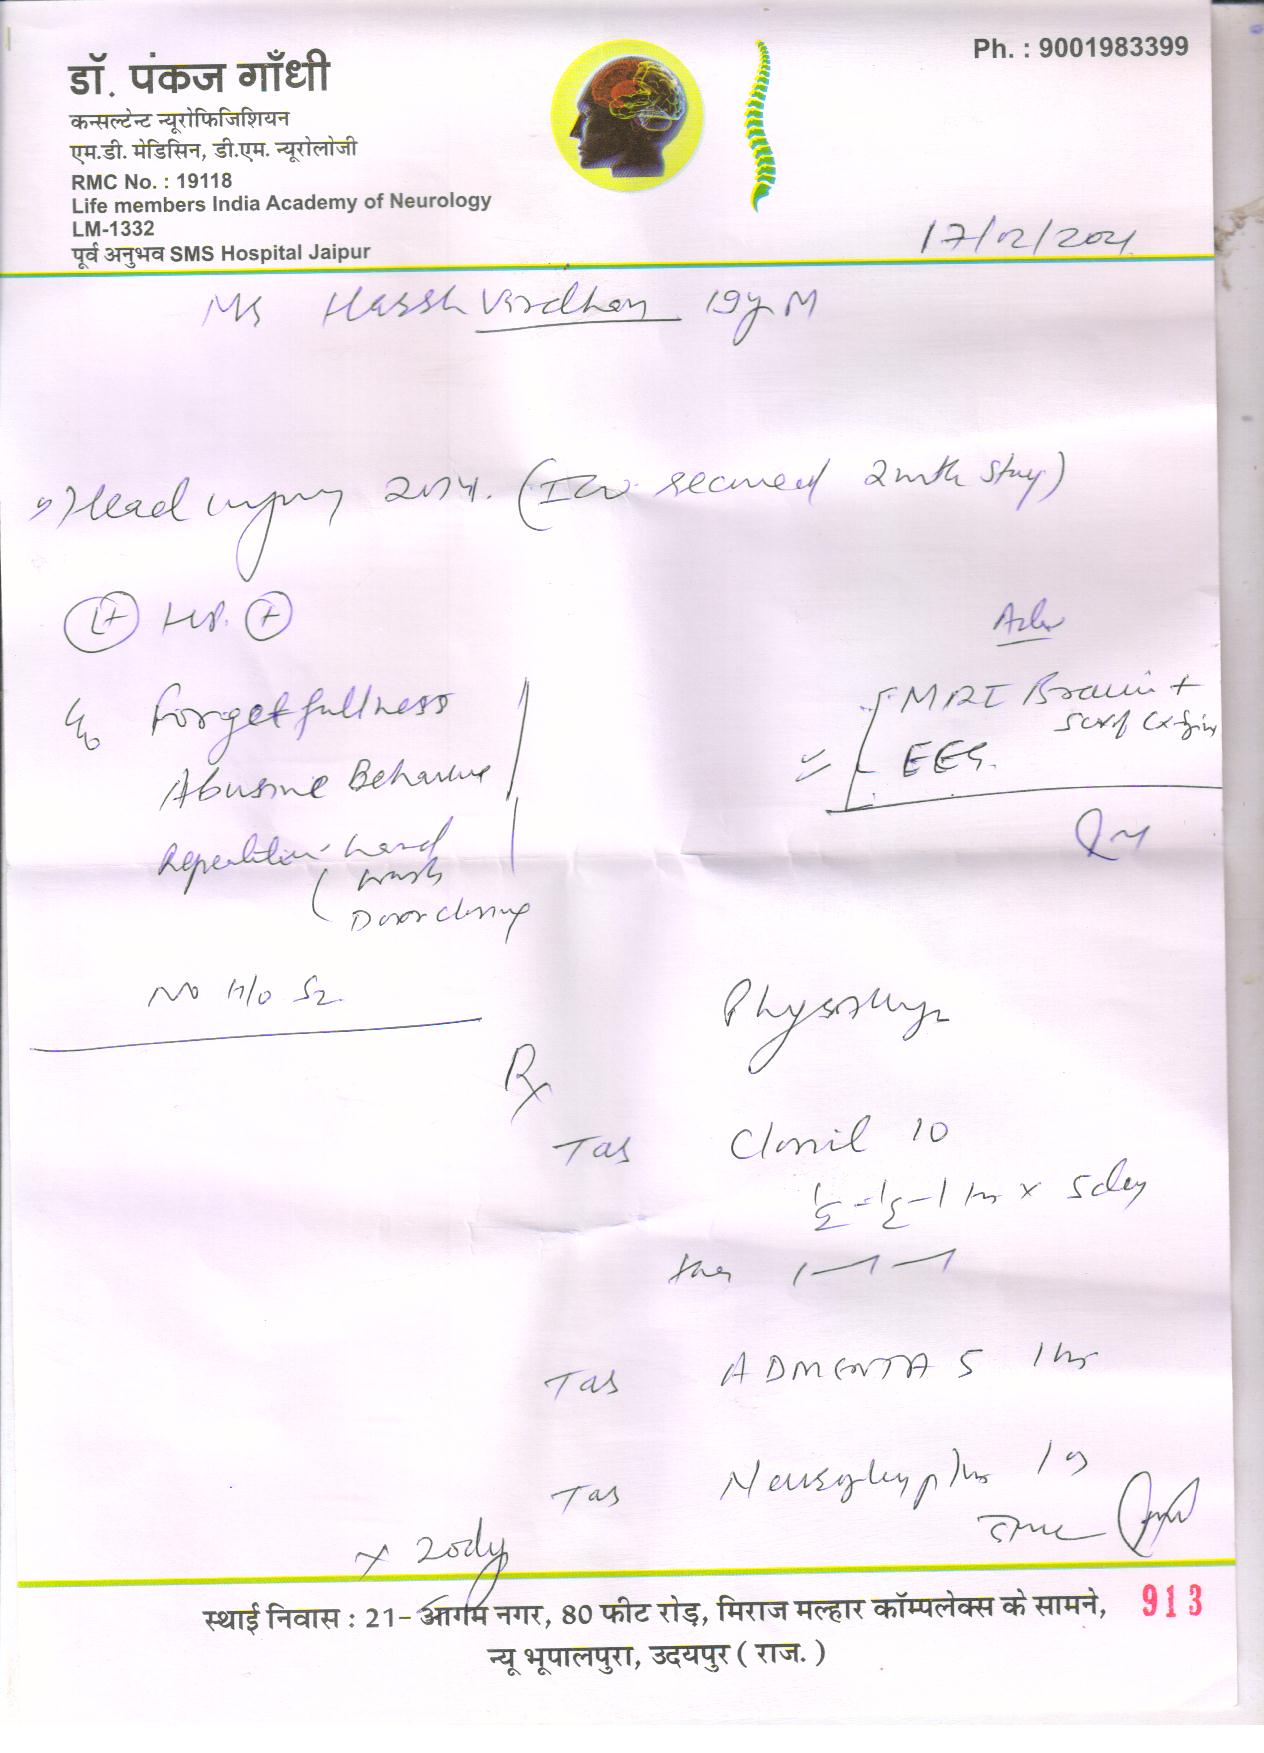 डॉ. पंकज गाँधी
कन्सल्टेन्ट न्यूरोफिजिशियन
एम.डी. मेडिसिन, डी.एम. न्यूरोलोजी
RMC No. : 19118
Life members India Academy of Neurology
LM-1332
पूर्व अनुभव SMS Hospital Jaipur
Ph. : 9001983399
17/02/2021
Harsh Vardhan 19y M
Head injury (ICU 2 mth stay)
Lt HP. +
Forgetfullness
Abusive Behaviour
Repeatition hand
wash
Door closing
No H/o Sz
Adv
MRI Brain +
EEG.
Rx
Tab Clonil 10
½-½-1 x 5 day
1-1-1
Tab ADMENTA 5 1
Tab 1
x 20 dy
913
स्थाई निवास : 21- आगम नगर, 80 फीट रोड़, मिराज मल्हार कॉम्पलेक्स के सामने,
न्यू भूपालपुरा, उदयपुर ( राज. )